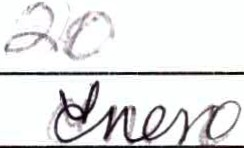 20
Enero